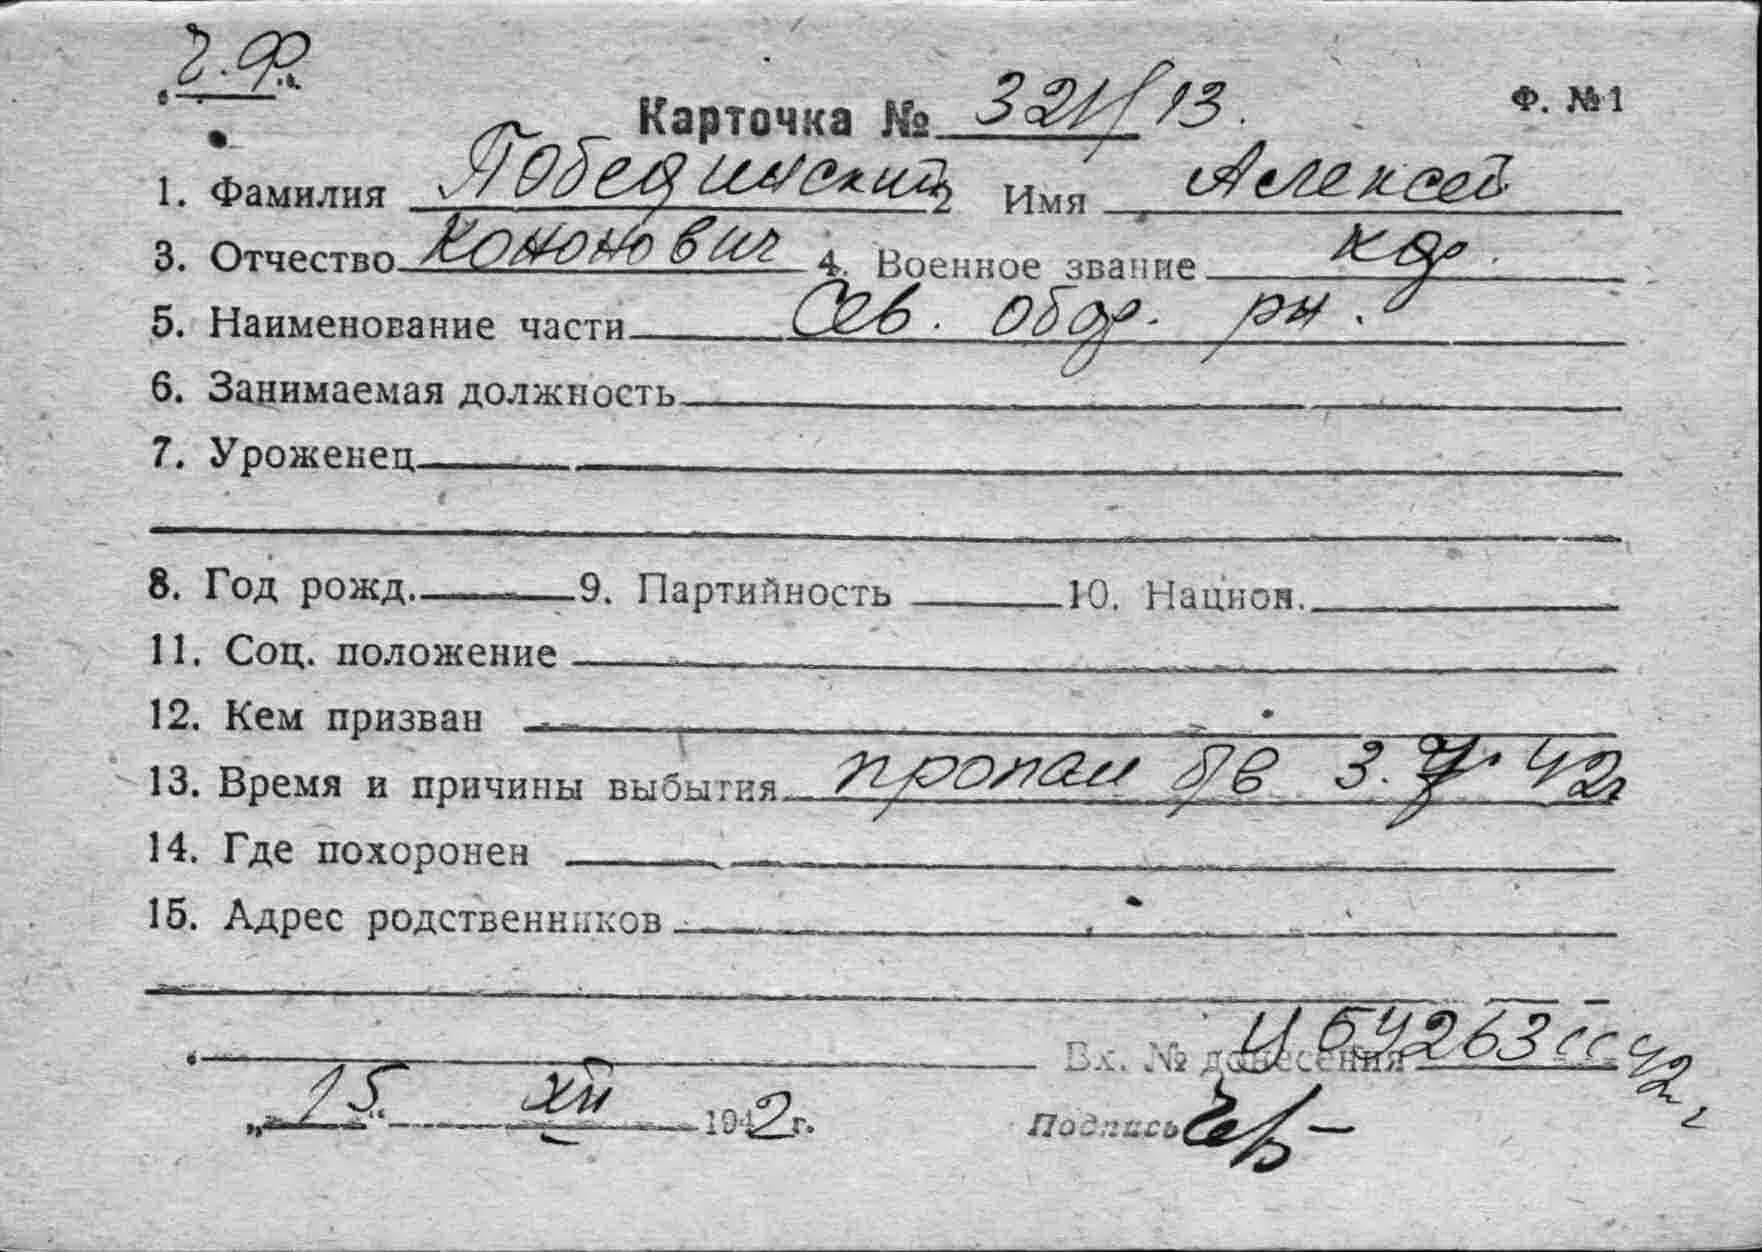 Ч.Ф.
Карточка № 321/13. Ф. №1
1. Фамилия Побединский 2 Имя Алексей
3. Отчество Кононович 4. Военное звание кф.
5. Наименование части Сев. обор. рн.
6. Занимаемая должность
7. Уроженец
8. Год рожд. 9. Партийность 10. Национ.
11. Соц. положение
12. Кем призван
13. Время и причины выбытия пропал б/в 3. 42г
14. Где похоронен
15. Адрес родственников
Вх. № донесения 54263сс 42 г
„15“ XII 1942 г. Подпись